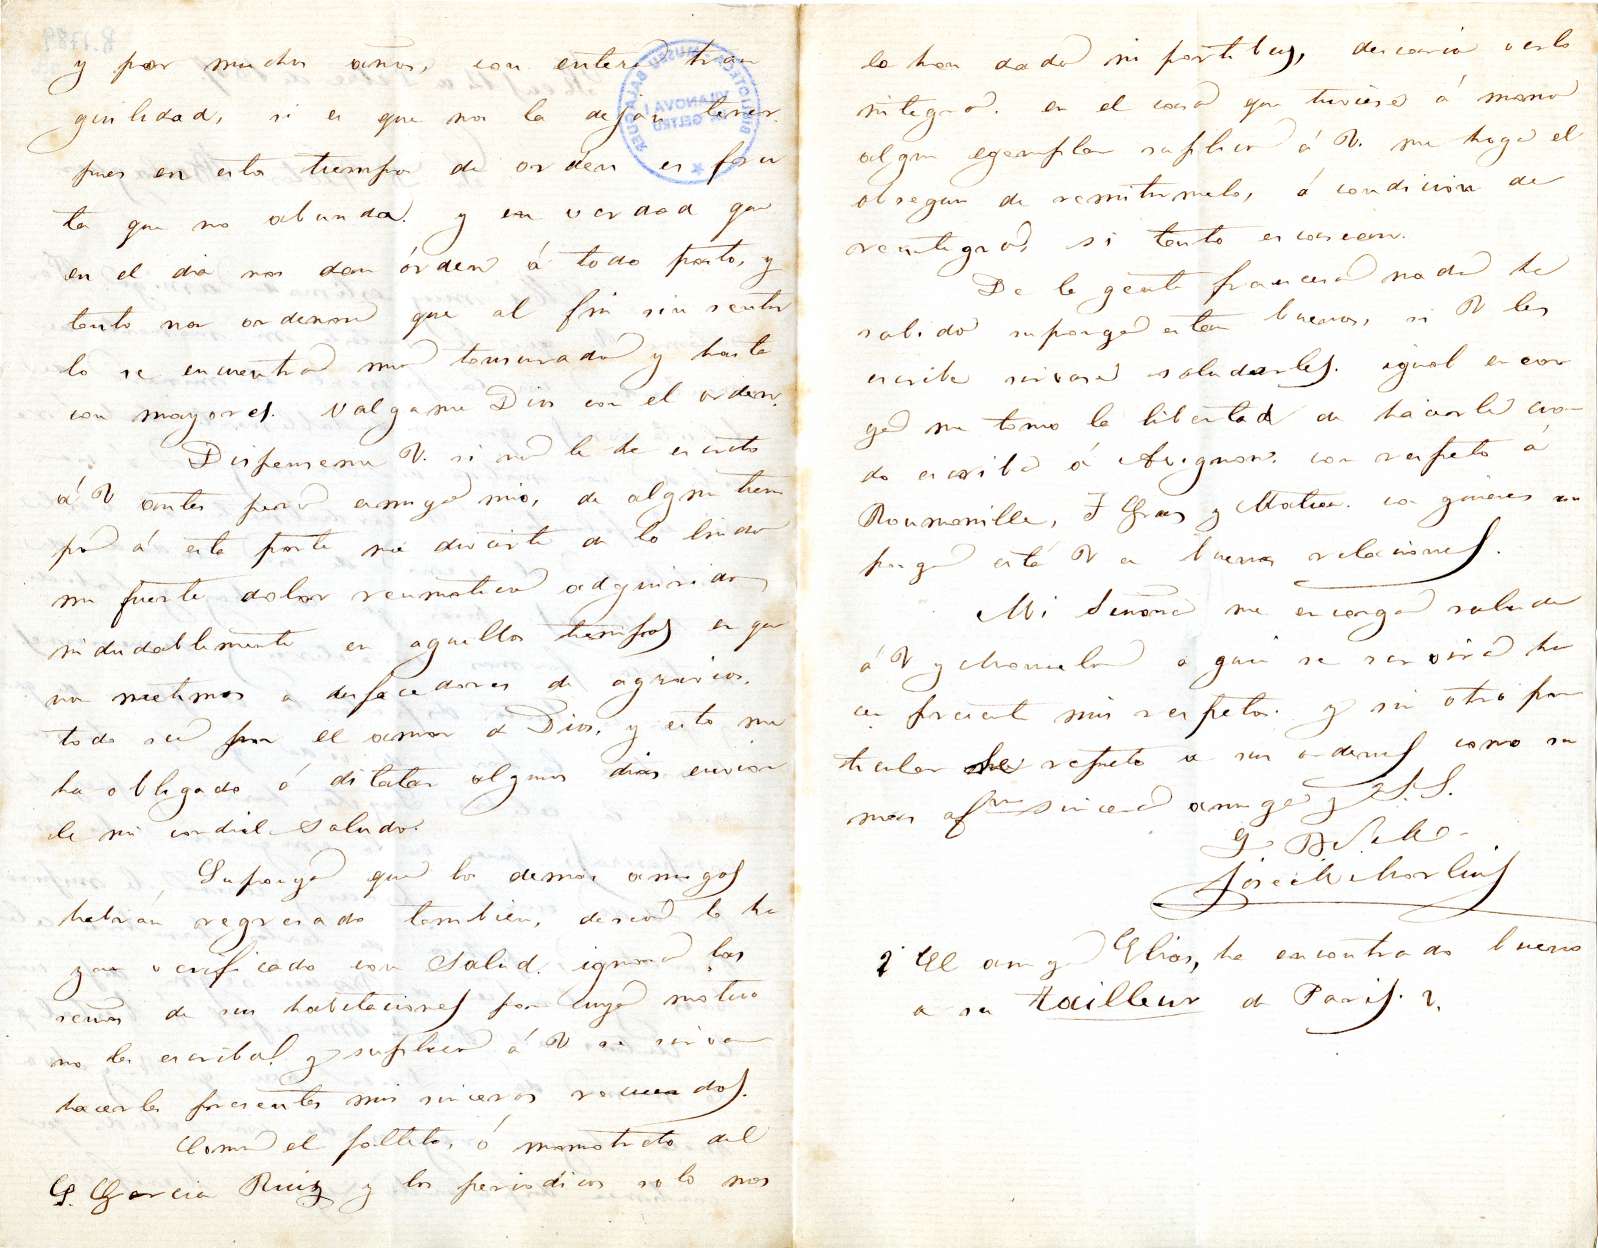 y por muchos años, con entera tran
quilidad, si es que nos la dejan tener.
pues en estos tiempos de orden es fru
ta que no abunda. y en verdad que
en el dia nos dan órden á todo pasto, y
tanto nos ordenan que al fin sin sentir
lo se encuentra uno tonsurado y hasta
con mayores. Valgame Dios con el orden.
Dispenseme V. si no le he escrito
á V antes pero amigo mio, de algun tiem
po á esta parte me divierte de lo lindo
un fuerte dolor reumatico adquirido
indudablemente en aquellos tiempos en que
nos metimos a desfacedores de agravios.
todo sea por el amor de Dios, y esto me
ha obligado á dilatar algunos dias enviar
le mi cordial saludo.
Supongo que los demas amigos
habrán regresado tambien, deseo lo ha
yan verificado con salud. ignoro las
señas de sus habitaciones por cuyo motivo
no les escribo! y suplico á V se sirva
hacerles presentes mis sinceros recuerdos.
Como el folleto, ó mamotreto del
S. Garcia Ruiz y los periodicos solo nos
lo han dado in partibus, desearia verlo
integro. en el caso que tuviese á mano
algun egemplar suplico á V. me haga el
obsequio de remitirmelo, á condicion de
reintegro, si tanto escasean.
De la gente francesa nada he
sabido supongo estan buenos, si V les
escribe sirvase saludarles. igual encar
go me tomo la libertad de hacerle cuan
do escriba á Avignon. con respeto á
Roumanille, F Gras y Mathieu. con quienes su
pongo está V en buenas relaciones.
Mi Señora me encarga salude
á V y a quien se servirá ha
cer presente mis respetos. y sin otro par
ticular se repite a sus ordenes como su
mas afmo sincero amigo y S.S.
Q B S M
José M Marlius
¿El amigo Elias, ha encontrado bueno
a su tailleur de Paris?
BIBLIOTECA MUSEU BALAGUER
VILANOVA I
LA GELTRÚ
R.1789